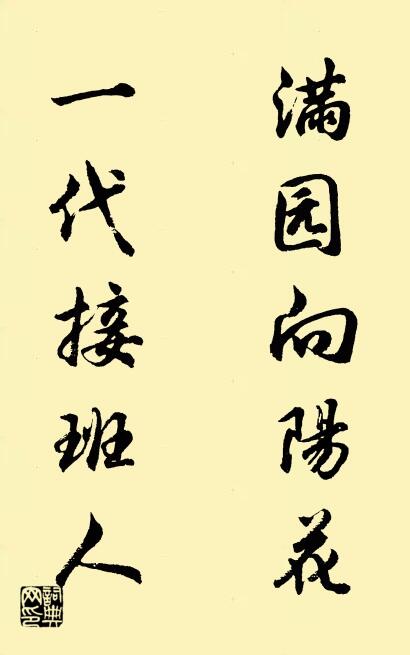 满园向陽花
一代接班人
詞典网印